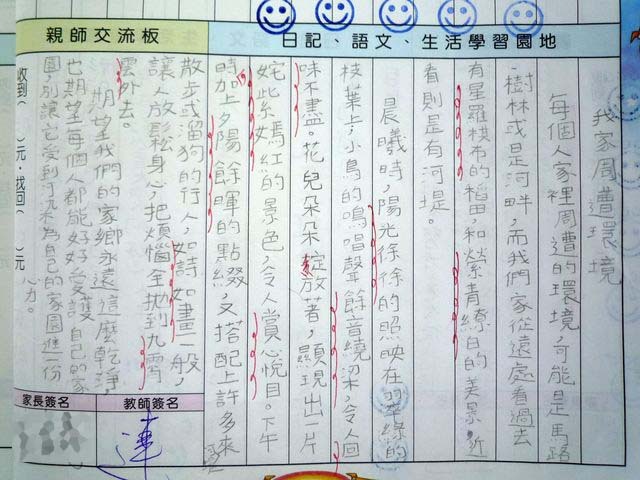 親師交流板
日記、語文、生活學習園地
我家周遭環境
每個人家裡周遭的環境,可能是馬路
、樹林或是河畔,而我們家從遠處看過去
有星羅棋布的稻田,和縈青繚白的美景,近
看則是有河堤。
晨曦時,陽光徐徐的照映在翠綠的
枝葉上,小鳥的鳴唱聲餘音繞梁,令人回
味不盡。花兒朵朵綻放著,顯現出一片
奼紫嫣紅的景色,令人賞心悅目。下午
時加上夕陽餘暉的點綴,又搭配上許多來
散步或溜狗的行人,如詩如畫一般,
讓人放鬆身心,把煩惱全拋到九霄
雲外去。
期望我們的家鄉永遠這麼乾淨,
也期望每個人都能好好愛護自己的家
園,別讓它受到污染為自己的家園進一份
心力。
收到( )元,找回( )元
家長簽名
教師簽名
連